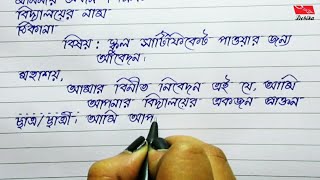 বিদ্যালয়ের নাম
ঠিকানা
বিষয়: স্কুল সার্টিফিকেট পাওয়ার জন্য
আবেদন।
মহাশয়,
আমার বিনীত নিবেদন এই যে, আমি
আপনার বিদ্যালয়ের একজন প্রাক্তন
ছাত্র/ছাত্রী। আমি আপ